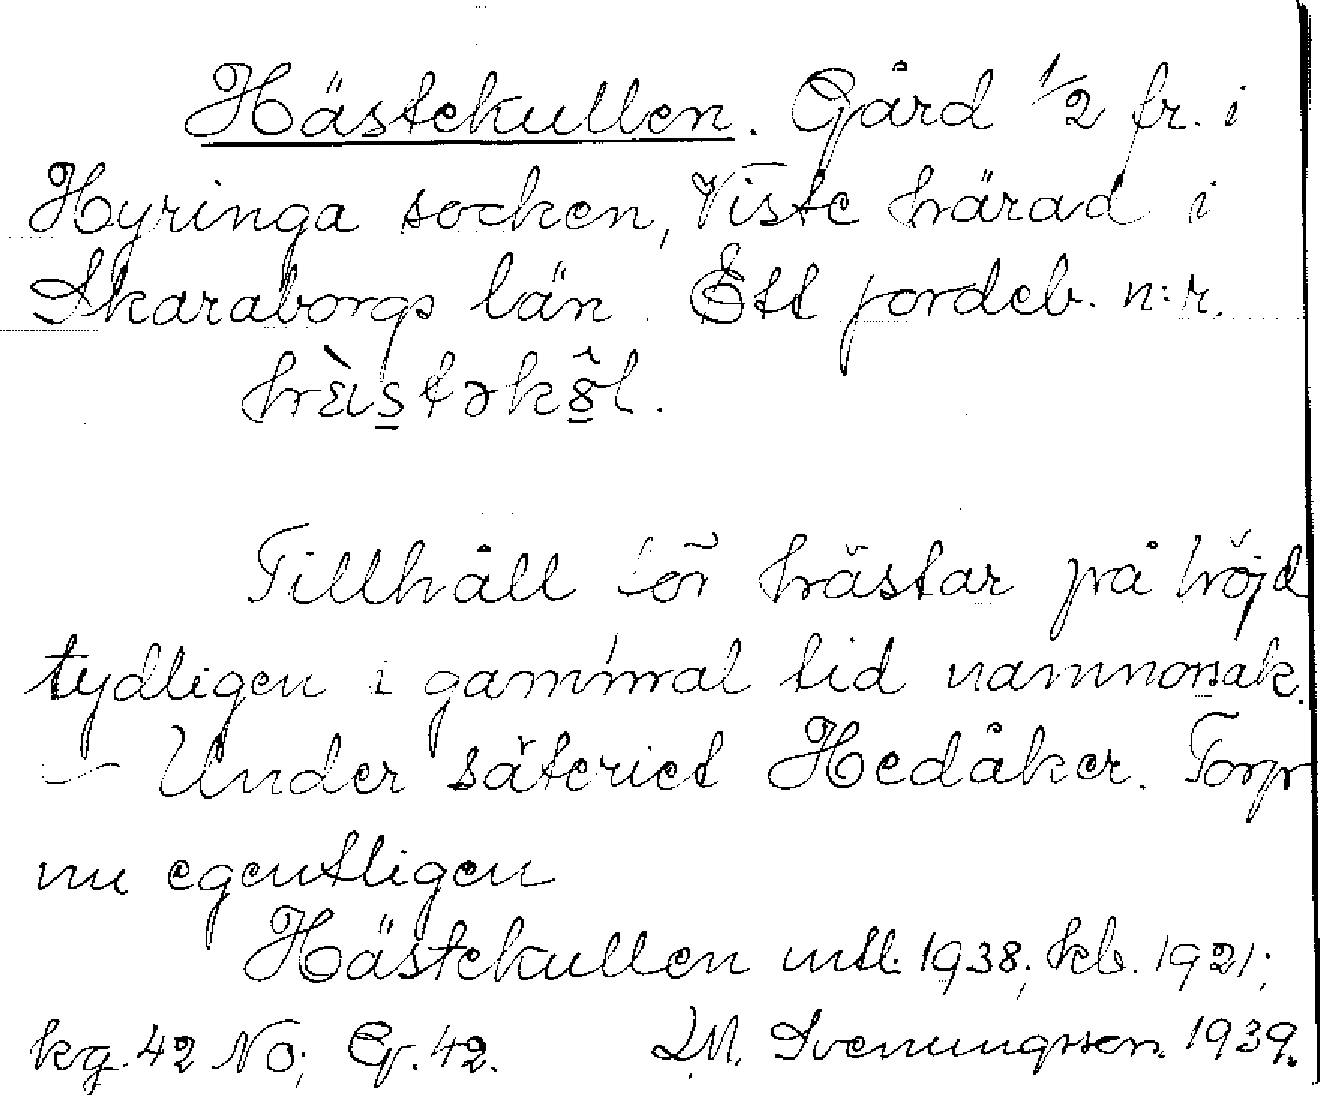 Hästekullen. Gård 1/2 fr. i
Hyringa socken, Viste härad i
Skaraborgs län. Ett jordeb. n:r.
Tillhåll för hästar på höjd
tydligen i gammal tid namnorsak.
— Under säteriet Hedåker. Torp
nu egentligen
Hästekullen mtl. 1938; kb. 1921;
kg. 42 NO; Er. 42. Svenungsson. 1939.